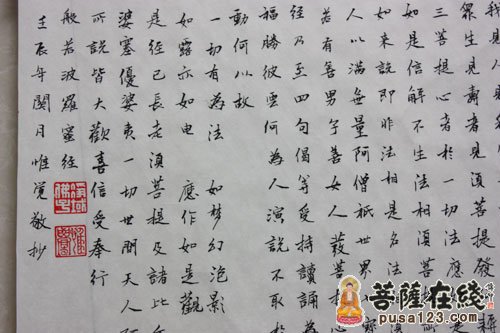 眾生見壽者見須菩提發
三菩提心者於一切法應
如是信解不生法相須菩提
如來說即非法相是名法
人以滿無量阿僧祇世界
若有善男子善女人發菩
經乃至四句偈等受持讀誦為
福勝彼云何為人演說不取於
動何以故
一切有為法 如夢幻泡影
如露亦如電 應作如是觀
是經已長老須菩提及諸比丘
婆塞優婆夷一切世間天人阿
所說皆大歡喜信受奉行
般若波羅蜜經
壬辰年閏月惟覺敬抄
菩薩在线
pusa123.com